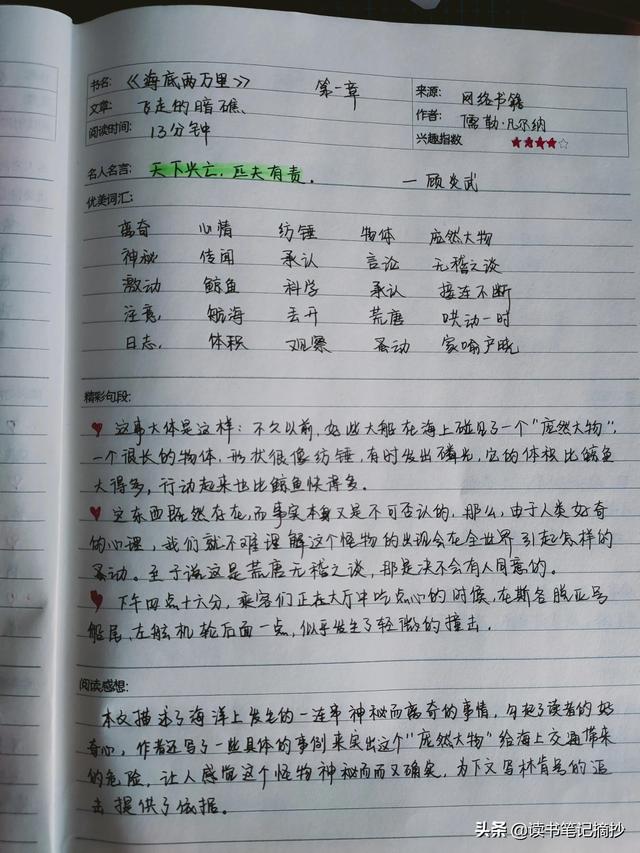 书名: 《海底两万里》 第一章
文章: 飞走的暗礁、
阅读时间: 13分钟
来源: 网络书籍
作者: 儒勒·凡尔纳
兴趣指数 ★★★★☆
名人名言: 天下兴亡，匹夫有责。 —顾炎武
优美词汇:
离奇 心情 纺锤 物体 庞然大物
神秘 传闻 承认 言论 无稽之谈
激动 鲸鱼 科学 承认 接连不断
注意 航海 丢开 荒唐 哄动一时
日志 体积 观察 骚动 家喻户晓
精彩句段:
♥ 这事大体是这样：不久以前，好些大船在海上碰见了一个“庞然大物”，
一个很长的物体，形状很像纺锤，有时发出磷光，它的体积比鲸鱼
大得多，行动起来也比鲸鱼快得多。
♥ 这东西既然存在，而事实本身又是不可否认的，那么，由于人类好奇
的心理，我们就不难理解这个怪物的出现会在全世界引起怎样的
骚动。至于说这是荒唐无稽之谈，那是决不会有人同意的。
♥ 下午四点十六分，乘客们正在大厅中吃点心的时候，在斯各脱亚号
船尾、左舷机轮后面一点，似乎发生了轻微的撞击。
阅读感想:
本文描述了海洋上发生的一连串神秘而离奇的事情，勾起了读者的好
奇心，作者还写了一些具体的事例来突出这个“庞然大物”给海上交通带来
的危险，让人感觉这个怪物神秘而而又确实，为下文写林肯号的追
击提供了依据。
头条 @读书笔记摘抄